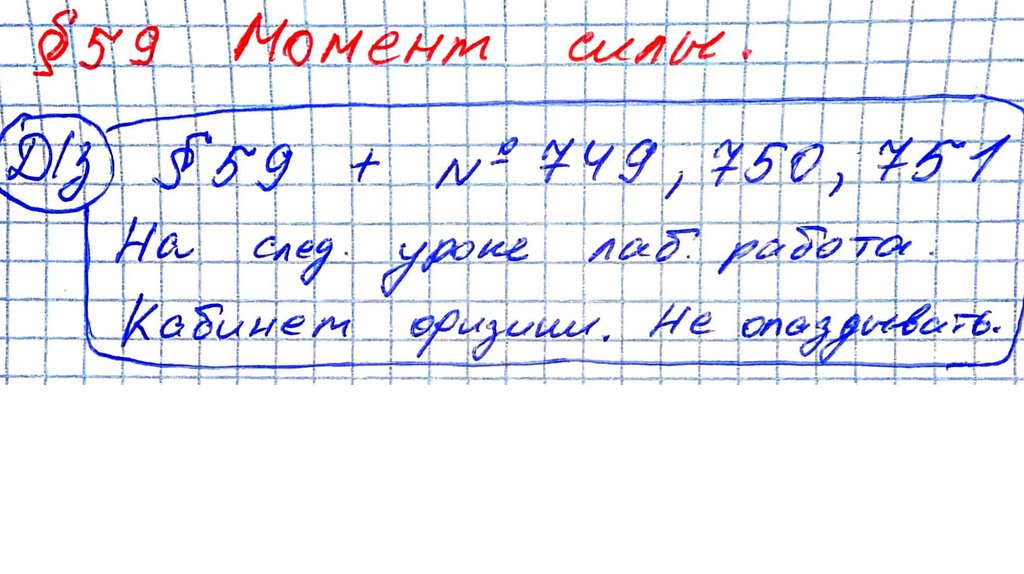 §59 Момент силы.
Д/з §59 + № 749, 750, 751
На след. уроке лаб. работа.
Кабинет физики. Не опаздывать.